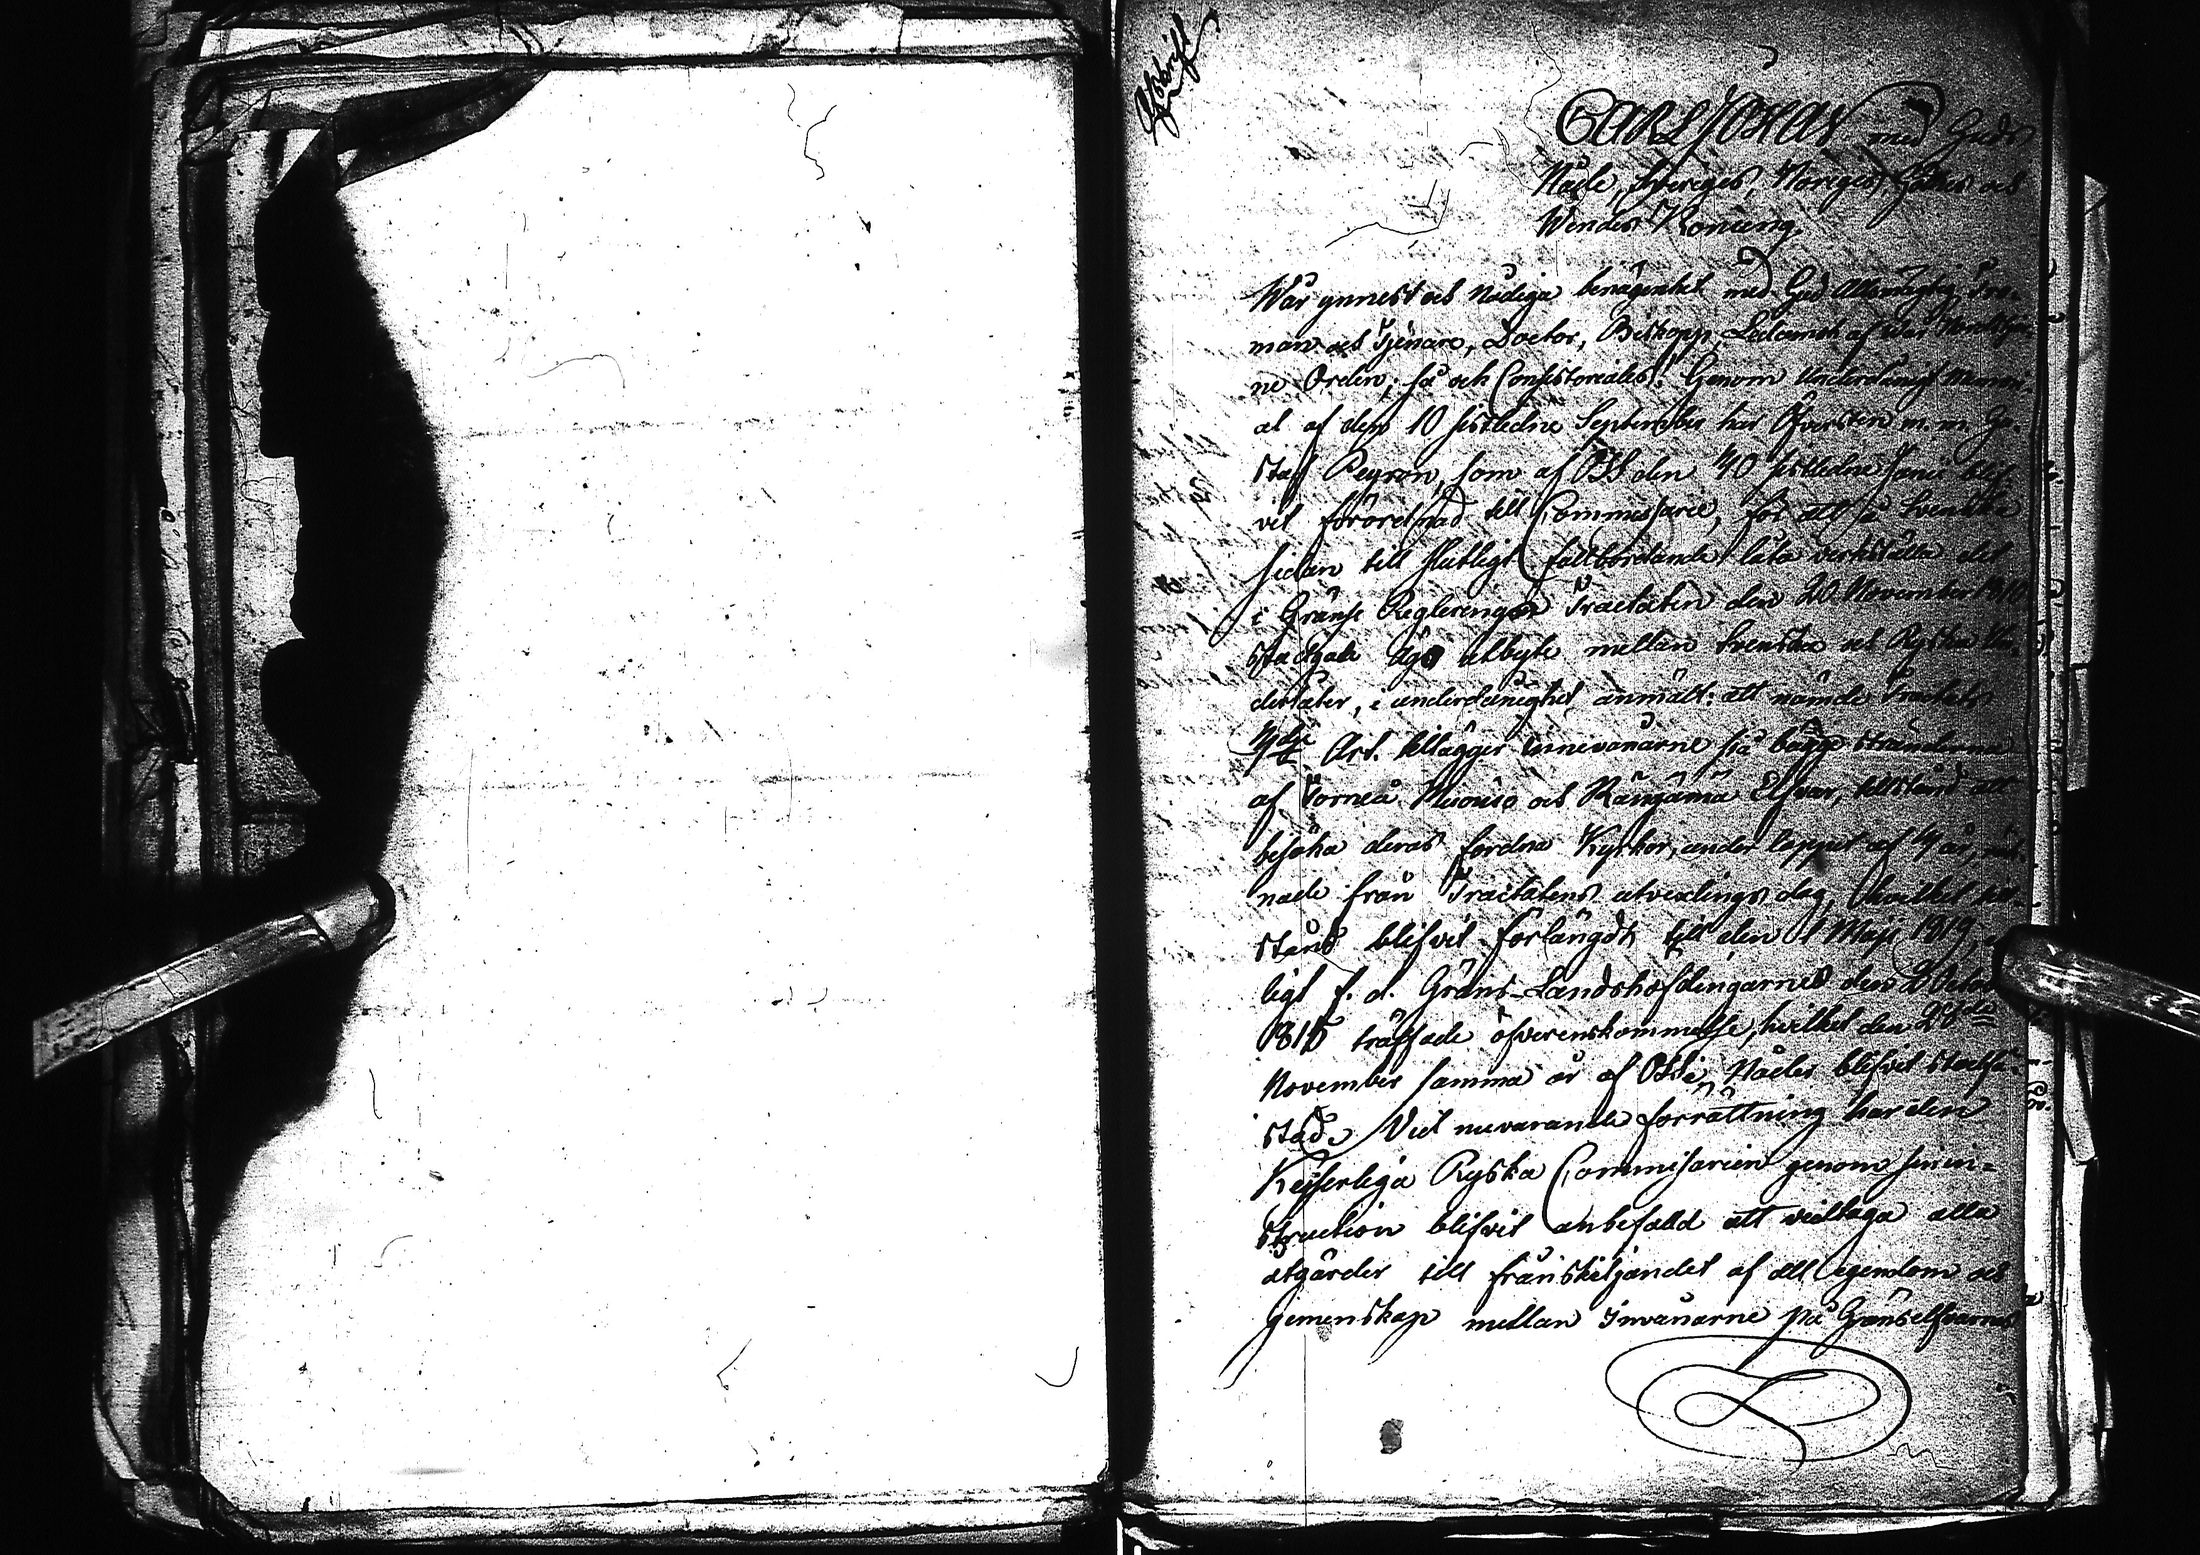 Afskrift
CARL JOHAN med Guds
Nåde, Sveriges, Norriges, Göthes och
Wendes Konung.
Wår ynnest och Nådiga benägenhet med Gud Allsmägtig, Tro-
man och Tjenare, Doctor, Biskopp, Ledamot af Wår Nordstjer-
ne Orden; så och Consistoriales! Genom Underdånigt Memori-
al af den 10 sistledne September har Öfversten m. m. Gu-
staf Peyron, som af Oss den 40 sistledne Junii blif-
vit förordnad till Commissarie, för att å Svenska
sidan till slutligt fullbordande låta verkställa det
i Gräns Reglerings Tractaten den 20 November 1810
stadgade ägo utbyte mellan Svenska och Ryska Un-
dersåter, i underdånighet anmält: att nämde Tractats
4de Art. tillägger innevånarne på bägge stränderna
af Torneå Muonio och Köngämä Elfvar, tillstånd att
besöka deras fordna Kyrkor, under loppet af 4 år, räk-
nade från Tractatens utvexlings dag, hvilket till-
stånd blifvit förlängdt till den 1 Maji 1819, en-
ligt f. d. Gräns-Landshöfdingarnes den 2 October
1815 träffade öfverenskommelse, hvilket den 28de
November samma år af Oss i Nåder blifvit stadfä-
stad. Vid nuvarande förrättning har den
Kejserliga Ryska Commissarien genom sin in-
struction blifvit anbefalld att vidtaga alla
åtgärder till frånskiljandet af all egendom och
gemenskap mellan Invånarne på Gränselfvarnes